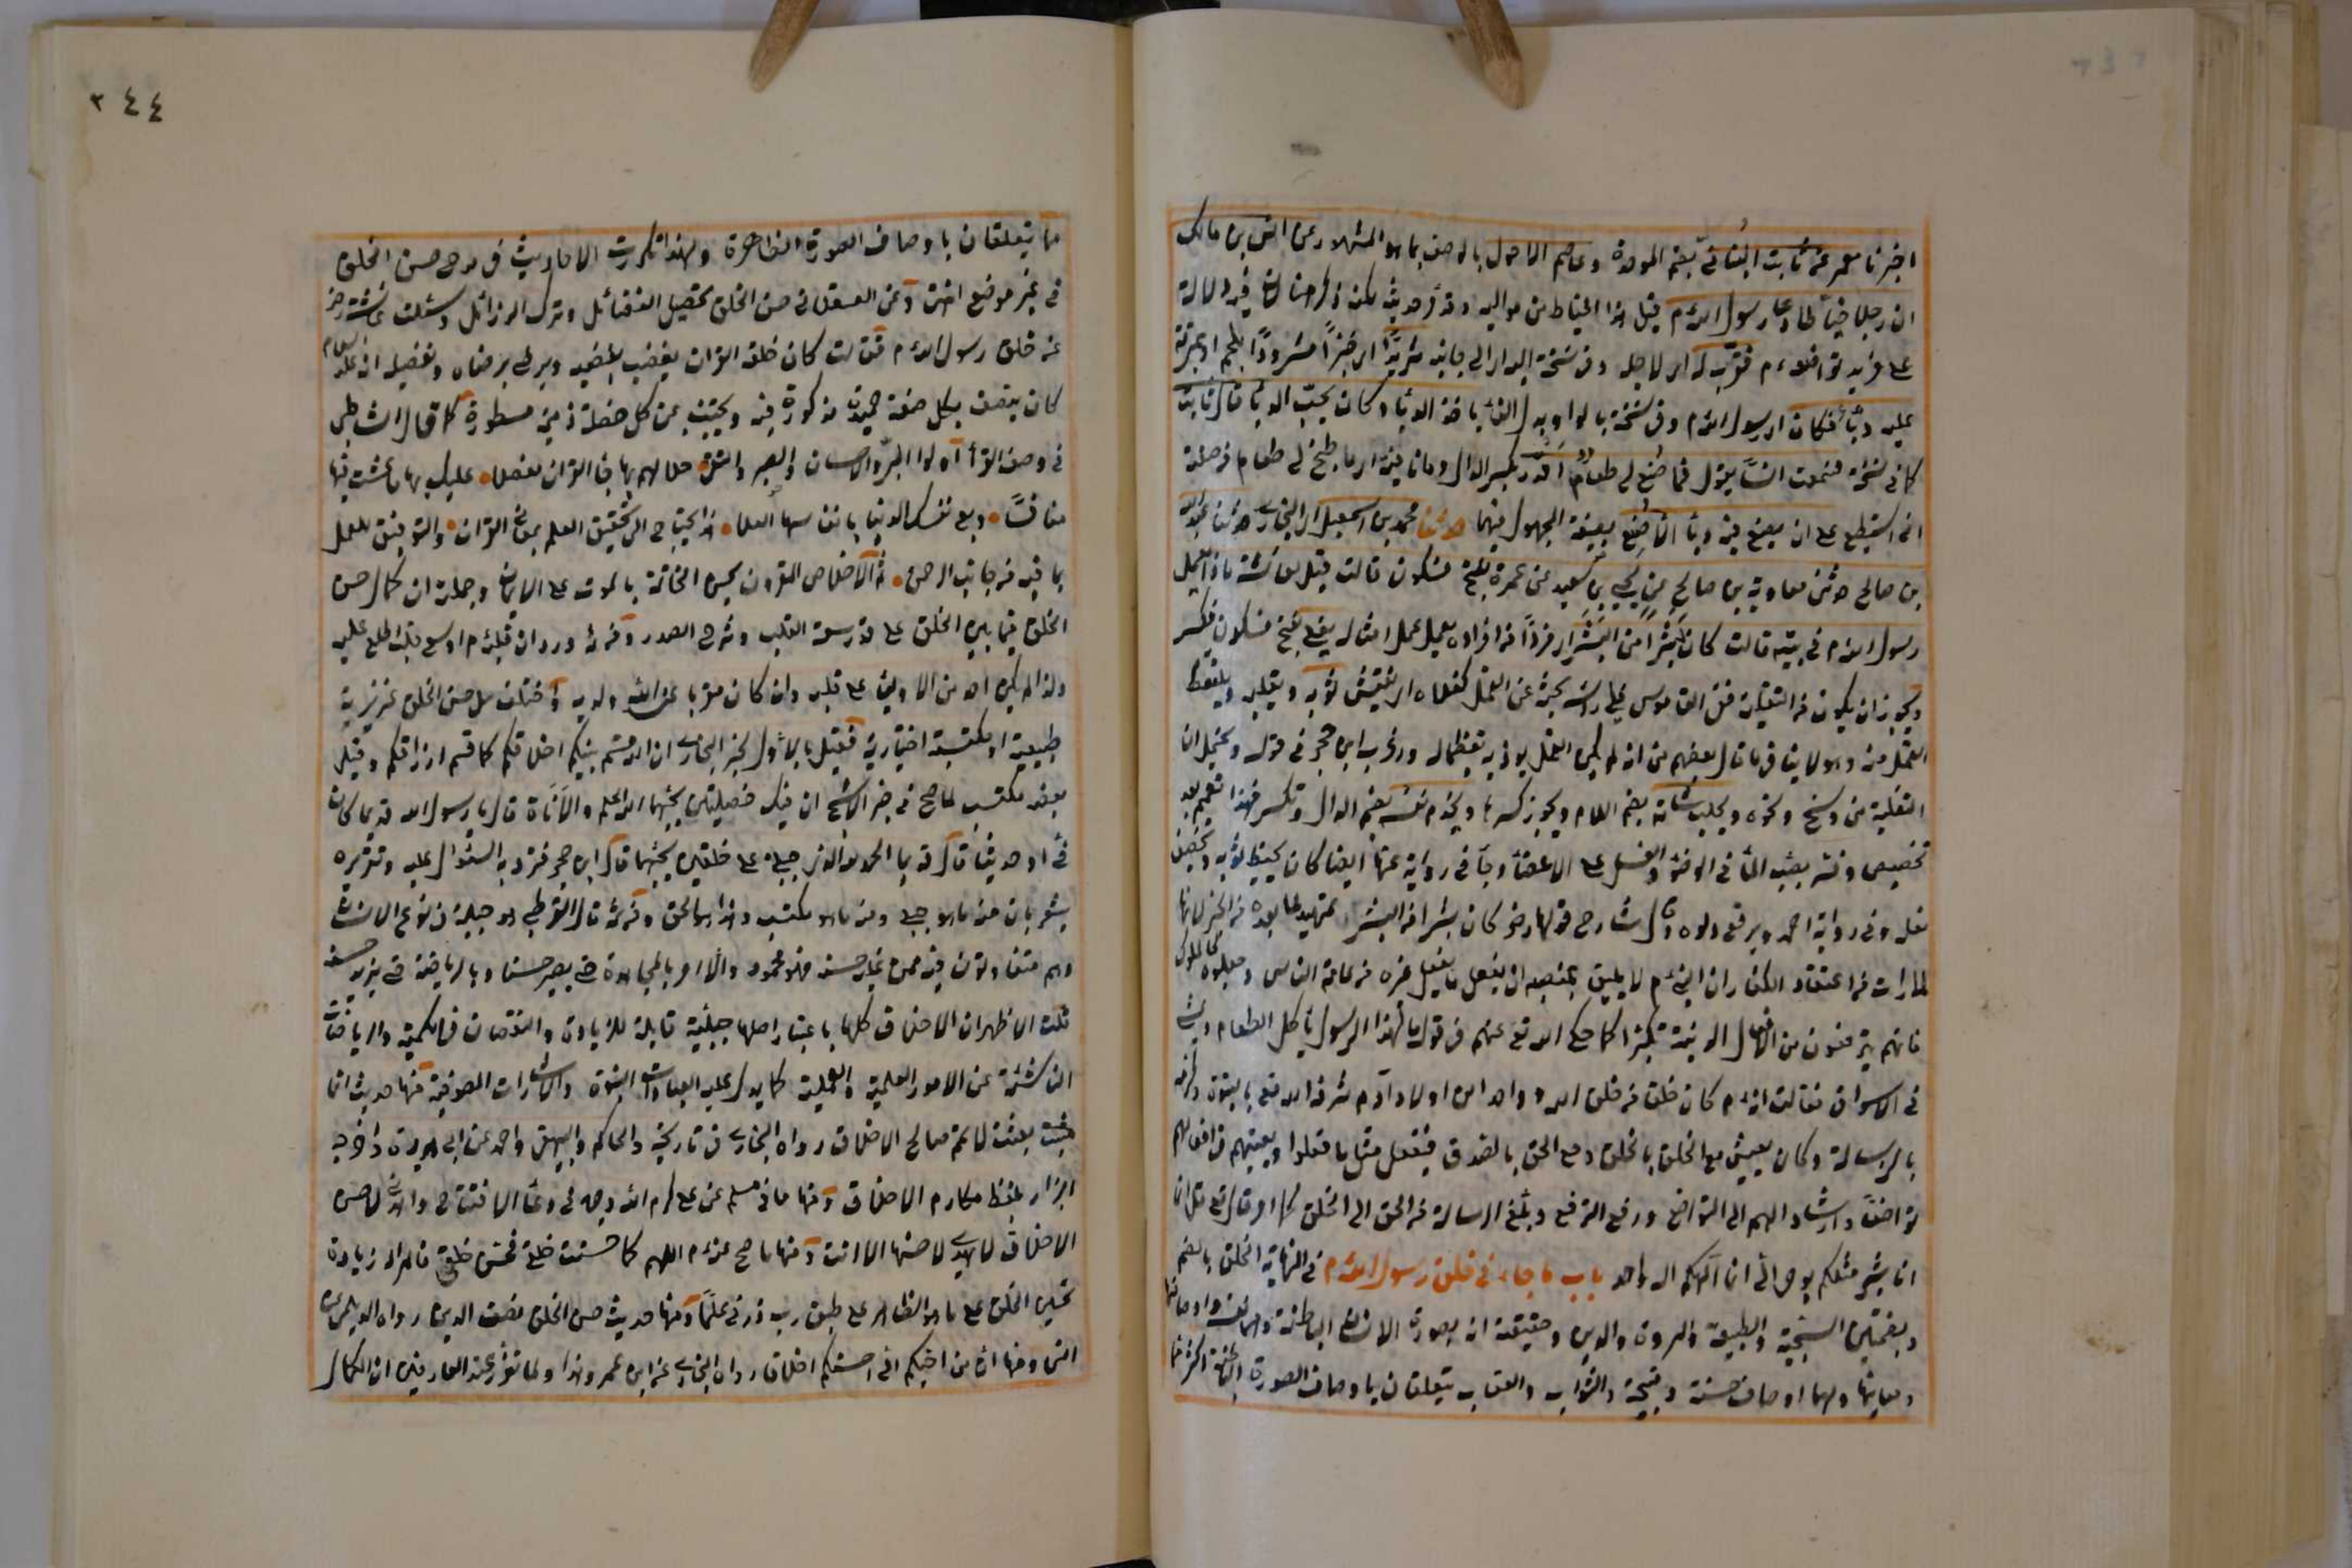 اخبرنا معمر عن ثابت البناني بضم الموحدة وعاصم الاحول بالوصف بما هو المشهور عن انس بن مالك
ان رجلا خياطا دعا رسول الله م قيل هذا الخياط من مواليه وقد مر حديثه لكن ذكر هنا لما فيه الدلالة
على مزيد تواضعه م فقرب له اي لاجله وفي نسخة اليه اي الى جانبه ثريدا اي خبزا مثرودا بلحم او بمرقة
عليه دباء فكان اي رسول الله م وفي نسخة بالواو بدل الفاء ياخذ الدباء وكان يحب الدباء قال ثابت
كما في نسخة فسمعت انسا يقول فما صنع لي طعام اقدر بكسر الدال وما نافية اي ما طبخ لي طعام من صفته
اني استطيع على ان يصنع فيه دباء الا صنع بصيغة المجهول فيهما حدثنا محمد بن اسمعيل اي البخاري حدثنا عبد الله
بن صالح حدثني معاوية بن صالح عن يحيى بن سعيد عن عمرة بفتح فسكون قالت قيل لعائشة ماذا يعمل
رسول الله م في بيته قالت كان بشرا من البشر اي فردا من افراده يعمل عمل امثاله يفلي بفتح فسكون فكسر
ويجوز ان يكون من التفلية ففي القاموس فلى راسه بحثه عن القمل كفلاه اي يفتش ثوبه ويقلبه ويلتقط
القمل منه وهو لا ينافي ما قال بعضهم من انه لم يكن القمل يوذيه تعظيما له واغرب ابن حجر في قوله ويحتمل ان
التفلية من وسخ ونحوه ويحلب شاته بضم اللام ويجوز كسرها ويخدم نفسه بضم الدال وتكسر فهذا تعميم بعد
تخصيص وفسر بصب الماء في الوضوء والغسل على الاعضاء وجاء في رواية عنها ايضا كان يخيط ثوبه ويخصف
نعله وفي رواية احمد ويرقع دلوه قال شارح قولها رض كان بشرا من البشر تمهيد لما بعده من الخبر لانها
لما رات من اعتقاد الكفار ان النبي م لا يليق بمنصبه ان يفعل ما يفعل غيره من عامة الناس وجعلوه كالملوك
فانهم يترفعون من افعال الدنية تكبرا كما حكى الله تع عنهم في قوله ما لهذا الرسول ياكل الطعام ويمشي
في الاسواق فقالت انه م كان خلق من خلق الله وواحد من اولاد آدم شرفه الله تع بالنبوة وكرمه
بالرسالة وكان يعيش مع الخلق بالخلق ومع الحق بالصدق فيفعل مثل ما فعلوا ويعينهم في افعالهم
تواضعا وارشادا لهم الى التواضع ورفع الترفع وتبليغ الرسالة من الحق الى الخلق كما امر قال تع قل انما
انا بشر مثلكم يوحى الي انما الهكم اله واحد باب ما جاء في خلق رسول الله م في النهاية الخلق بالضم
وبضمتين السجية والطبيعة والمروة والدين وحقيقته انه لصورة الانسان الباطنة وهي نفسه واوصافها
ومعانيها ولها اوصاف حسنة وقبيحة والثواب والعقاب يتعلقان باوصاف الصورة الباطنة اكثر مما
٣٤٤
ما يتعلقان باوصاف الصورة الظاهرة ولهذا تكررت الاحاديث في مدح حسن الخلق
في غير موضع انتهى وعن العسقلاني حسن الخلق تحصيل الفضائل وترك الرذائل وسئلت عائشة رض
عن خلق رسول الله م فقالت كان خلقه القرآن يغضب لغضبه ويرضى برضاه وتفصيله انه عليه السلام
كان يتصف بكل صفة حميدة مذكورة فيه ويجتنب عن كل خصلة ذميمة مسطورة كما قال الشاطبي
في وصف القراء اولوا البر والاحسان والصبر والتقى حلاهم بها جاء القرآن مفصلا عليك بها ما عشت فيها
منافسا وبع نفسك الدنيا بانفاسها العلا فانه يحتاج الى تحقيق العلم بمعاني القرآن والتوفيق للعمل
بما فيه من جانب الرحمن ثم الاخلاص المقرون بحسن الخاتمة بالموت على الايمان وجملته ان كمال حسن
الخلق فيما بين الخلق على قدر سعة القلب وشرح الصدر ومن ثم ورد ان قلبه م اوسع قلب اطلع عليه
ولذا لم يكن احد من الاولين على قلبه وان كان مقربا عند الله ولديه واختلف هل حسن الخلق غريزية
طبيعية او مكتسبة اختيارية فقيل بالاول لخبر البخاري ان الله قسم بينكم اخلاقكم كما قسم ارزاقكم وقيل
بعضه مكتسب لما صح في خبر الاشج ان فيك خصلتين يحبهما الله الحلم والاناة قال يا رسول الله قديما كان
في او حديثا قال قديما الحمد لله الذي جبلني على خلقين يحبهما قال ابن حجر فترديد السئوال عليه وتقريره
يشعر بان منه ما هو جبلي ومنه ما هو مكتسب وهذا هو الحق ومن ثم قال القرطبي هو جبلة في نوع الانسان
وهم متفاوتون فيه فمن غلبه حسنه فهو المحمود والا امر بالمجاهدة حتى يصير حسنا وبالرياضة حتى يزيد حسنه
قلت الاظهر ان الاخلاق كلها باعتبار اصلها جبلية قابلة للزيادة والنقصان في الكمية والرياضات
الناشئة عن الامور العلمية والعملية كما يدل عليه العبادات النبوة والاشارات الصوفية منها حديث انما
بعثت لاتمم صالح الاخلاق رواه البخاري في تاريخه والحاكم والبيهقي واحمد عن ابي هريرة واخرجه
البزار بلفظ مكارم الاخلاق ومنها ما في مسلم عن علي كرم الله وجهه في دعاء الافتتاح واهدني لاحسن
الاخلاق لا يهدي لاحسنها الا انت ومنها ما صح عنه م اللهم كما حسنت خلقي فحسن خلقي فالمراد زيادة
تحسين الخلق على ما هو الظاهر على طبق رب زدني علما ومنها حديث حسن الخلق نصف الدين رواه الديلمي عن
انس ومنها ان من احبكم الي احسنكم اخلاقا رواه البخاري عن ابن عمر وهذا ولما تقرر عند العارفين ان الكمال